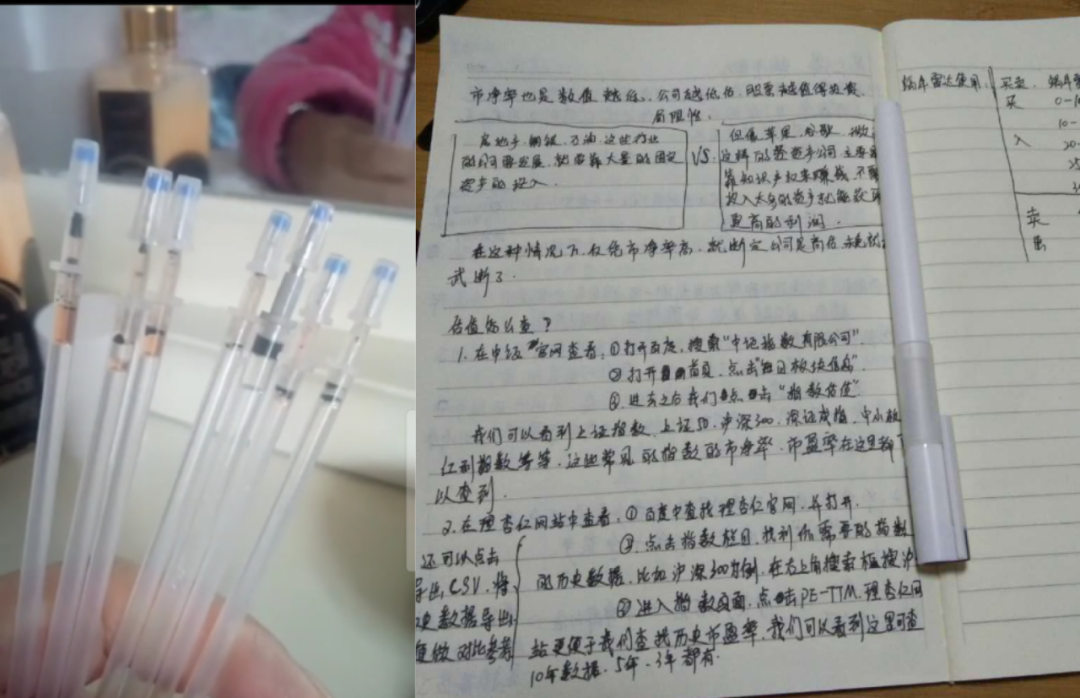 市净率也是数值越低,公司越低估,股票越值得投资.
局限性.
房地产、钢铁、石油,这些行业
的公司要发展,就要靠大量的固定
资产的投入.
VS.
但像苹果、谷歌、微
这样的轻资产公司主要
靠知识产权来赚钱,不
投入太多的资产就能获
更高的利润.
在这种情况下,仅凭市净率高,就断定公司是高估
武断了.
估值怎么查?
1.在中证官网查看:①打开百度,搜索"中证指数有限公司".
②打开首页,点击"每日板块信息"
③进去之后我们点击"指数估值"
我们可以看到上证指数,上证50,沪深300,深证成指,中小板
红利指数等等,这些常见的指数的市净率.市盈率在这里都
以查到.
2.在理杏仁网站中查看:①百度中查找理杏仁官网,并打开.
②.点击指数栏目,找到你需要的指数
的历史数据,比如沪深300为例,在右上角搜索框搜沪
②进入指数页面,点击PE-TTM,理杏仁网
站更便于我们查找历史市盈率,我们可以看到这里可查
10年数据.5年.3年都有.
还可以点击
导出CSV,将
史数据导出,
便做对比参考
蜗牛雷达使用:
买卖.
买
入
0-1
10-
20-
卖
出